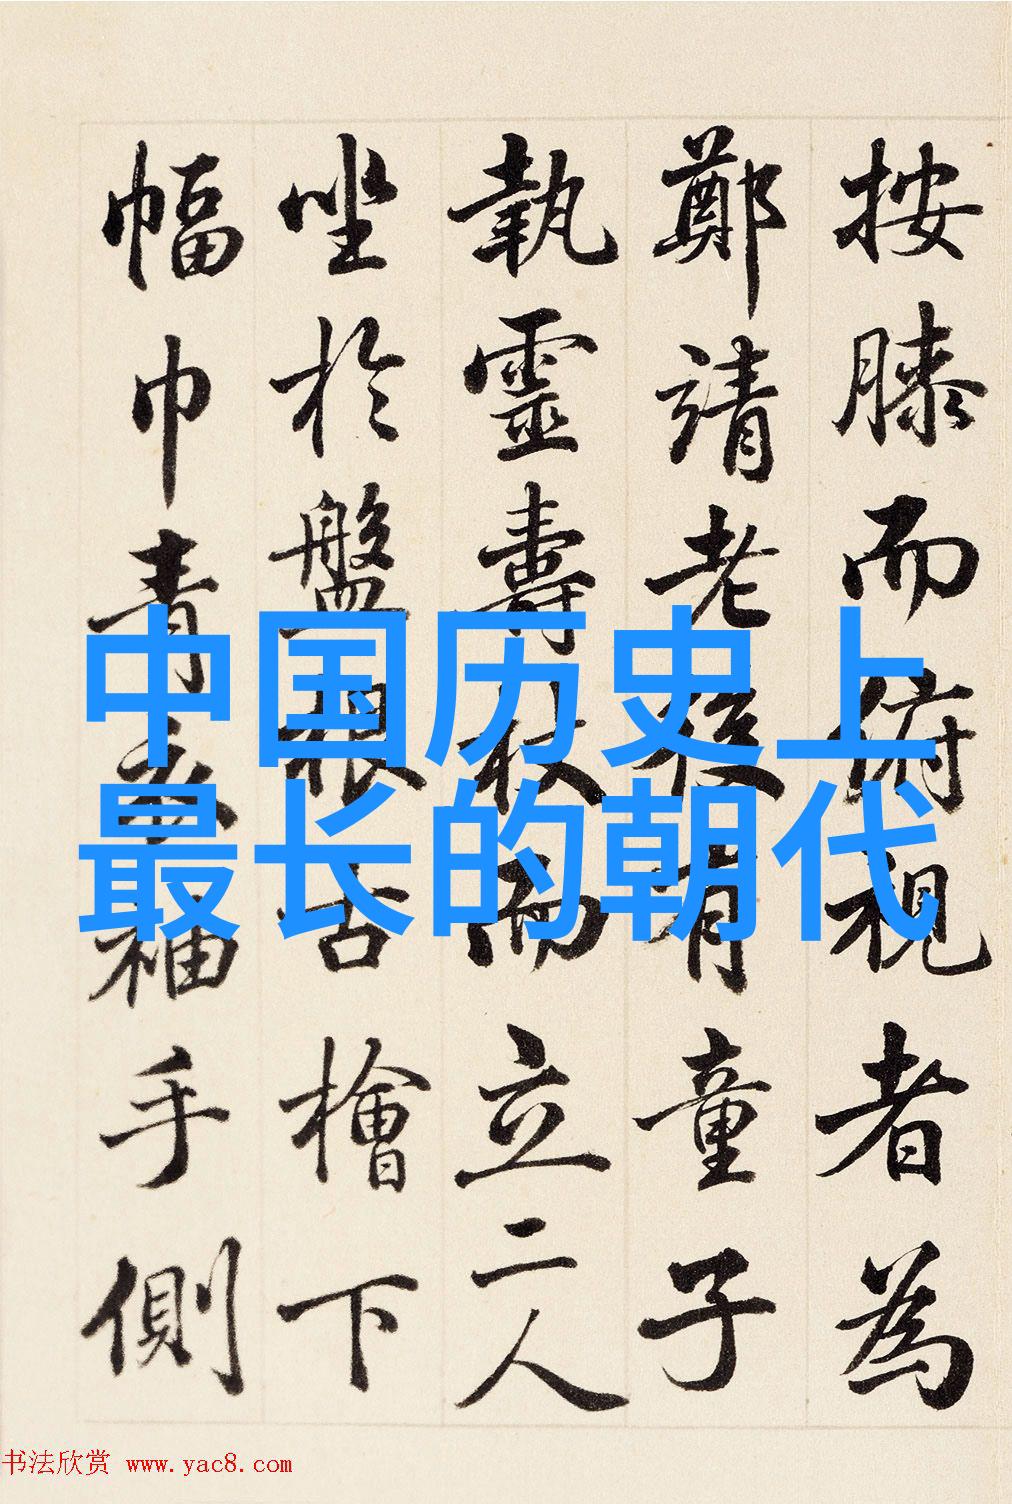 按膝而俯視者為
鄭靖老後有童子
執靈壽杖而立二人
坐於盤根古檜下
幅巾青衣袖手側
中国历史上
最长的朝代
书法欣赏 www.yac8.com